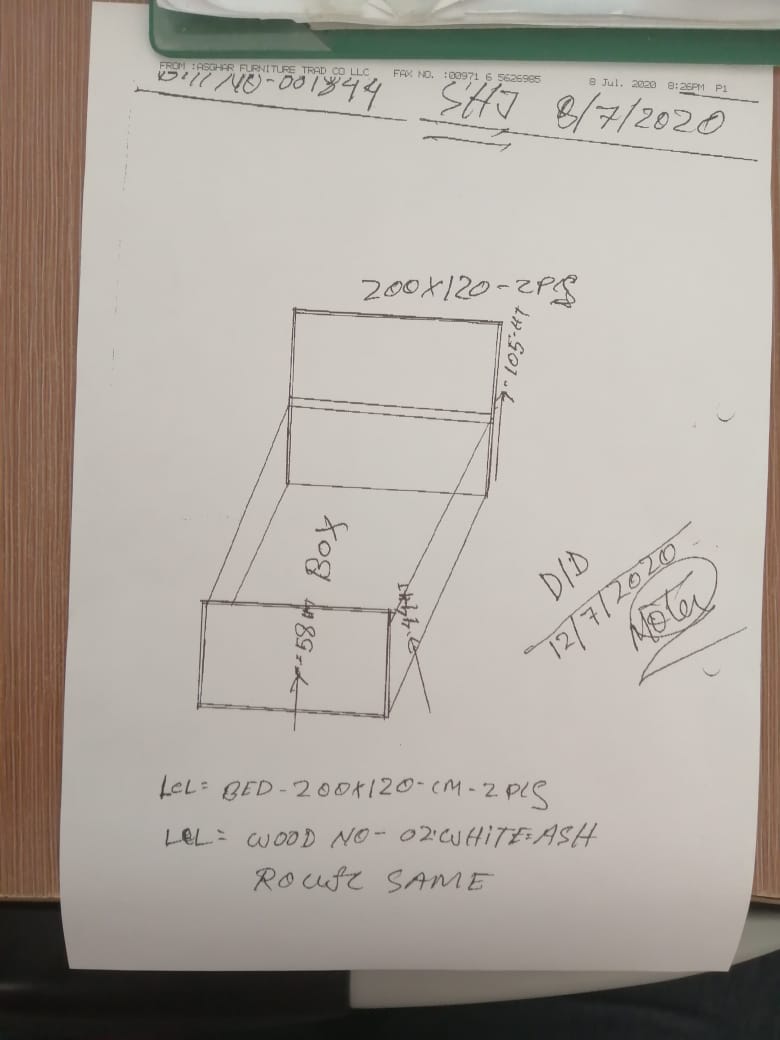 FROM :ASGHAR FURNITURE TRAD CO LLC FAX NO. :00971 6 5626985 8 Jul. 2020 8:26PM P1
Bill NO-001844 SHJ 8/7/2020
200X120-2PCS
105-HT
BOX
58 HT
44HT
D/D
12/7/2020
Note
LCL= BED-200X120-CM-2PCS
LCL= WOOD NO-02:WHITE=ASH
SAME